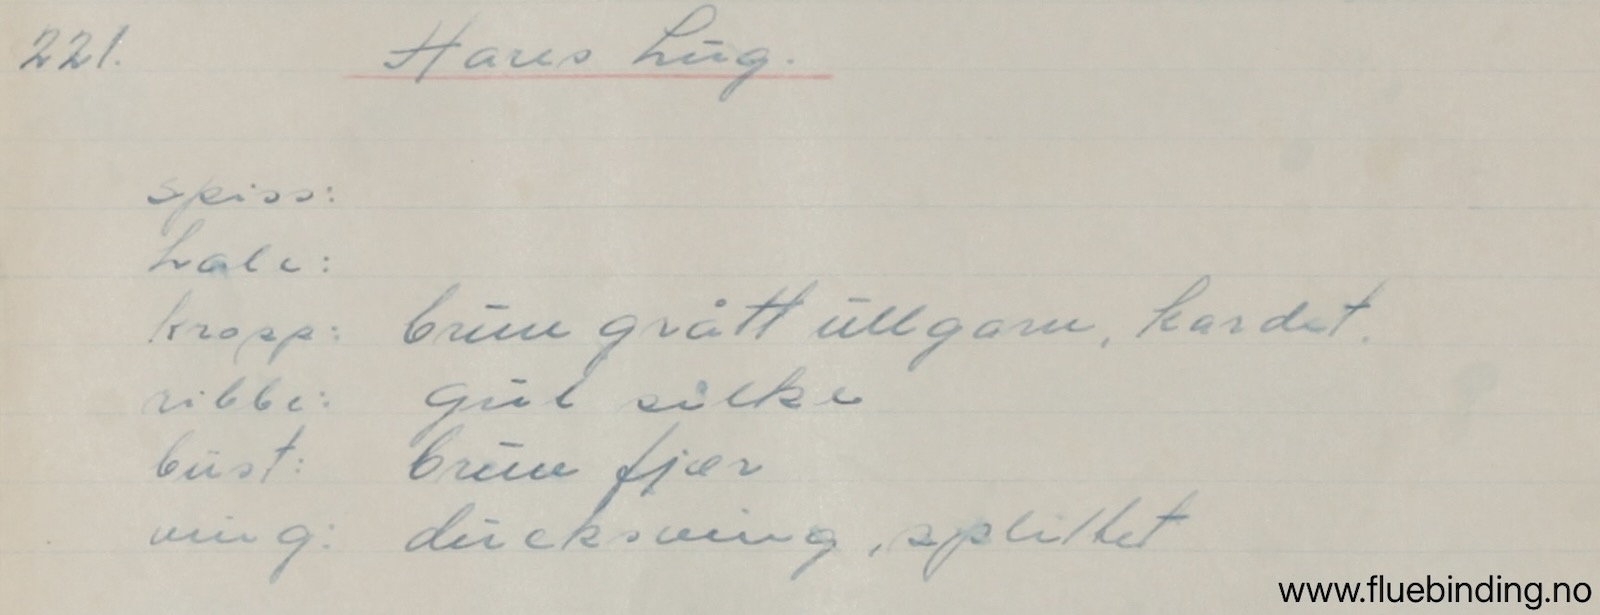 221. Hares Lug.
spiss:
hale:
kropp: brun grått ullgarn, kardet.
ribbe: gul silke
bust: brun fjær
ving: ducksving, splittet
www.fluebinding.no